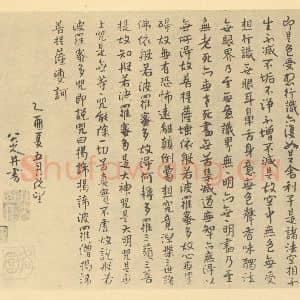 即是色受想行識亦復如是舍利子是諸法空相不
生不滅不垢不淨不增不減是故空中無色無受
想行識無眼耳鼻舌身意無色聲香味觸法
無眼界乃至無意識界無無明亦無無明盡乃至
無老死亦無老死盡無苦集滅道無智亦無得以
無所得故菩提薩埵依般若波羅蜜多故心無罣
礙故無有恐怖遠離顛倒夢想究竟涅槃三世諸
佛依般若波羅蜜多故得阿耨多羅三藐三菩
提故知般若波羅蜜多是大神咒是大明咒是無
上咒是無等等咒能除一切苦真實不虛故說般若
波羅蜜多咒即說咒曰揭諦揭諦波羅揭諦波羅僧揭諦
菩提薩婆訶
乙酉夏五月既望
Shufawang.Cn